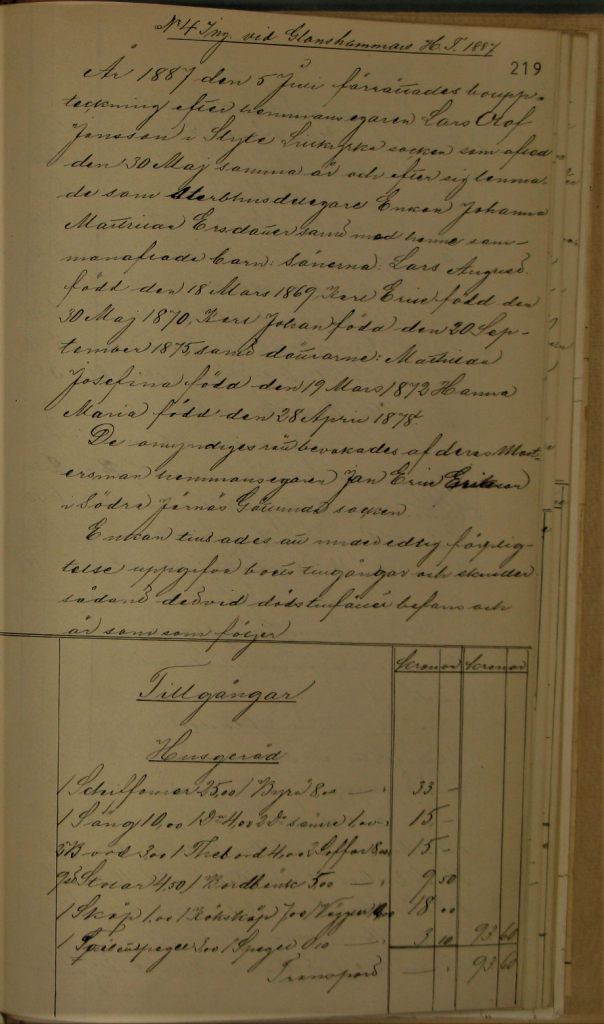 No 4 Ing. vid Glanshammars H. T. 1887
219
År 1887 den 5 Juli förrättades boupp-
teckning efter hemmansegaren Lars Olof
Jonsson i Socken som afled
den 30 Maj samma år och efter sig lemna-
de som sterbhusdelegare Enkan Johanna
Mathilda Ersdotter samt med henne sam-
manaflade barn: Sönerna: Lars August
född den 18 Mars 1869, Karl Erik född den
30 Maj 1870, Karl Johan född den 20 Sep-
tember 1875, samt döttrarne: Mathilda
Josefina född den 19 Mars 1872 Hanna
Maria född den 28 April 1878.
De omyndiges rätt bevakades af deras
hemmansegaren Jan Erik Eriksson
i Södra Järnäs Götlunda socken.
Enkan att under edlig förplig-
telse uppgifva boets tillgångar och skulder
sådant det vid dödstillfället befans och
är som som följer
Kronor Kronor
Tillgångar
Husgeråd
1 Schiffonier 25,00 1 Byrå 8,00 — 33 –
1 Säng 10,00 1 Do 4,00 2 Do sämre 1,00 15 –
Bord 3,00 1 Thebord 4,00 2 Soffor 8,00 15 –
Stolar 4,50 1 Bordbänk 5,00 — 9 50
1 Skåp 1,00 1 Kökskåp 7,00 1 18 00
1 1 Spegel 0,10 — 3 10 93 60
Transport — 93 60